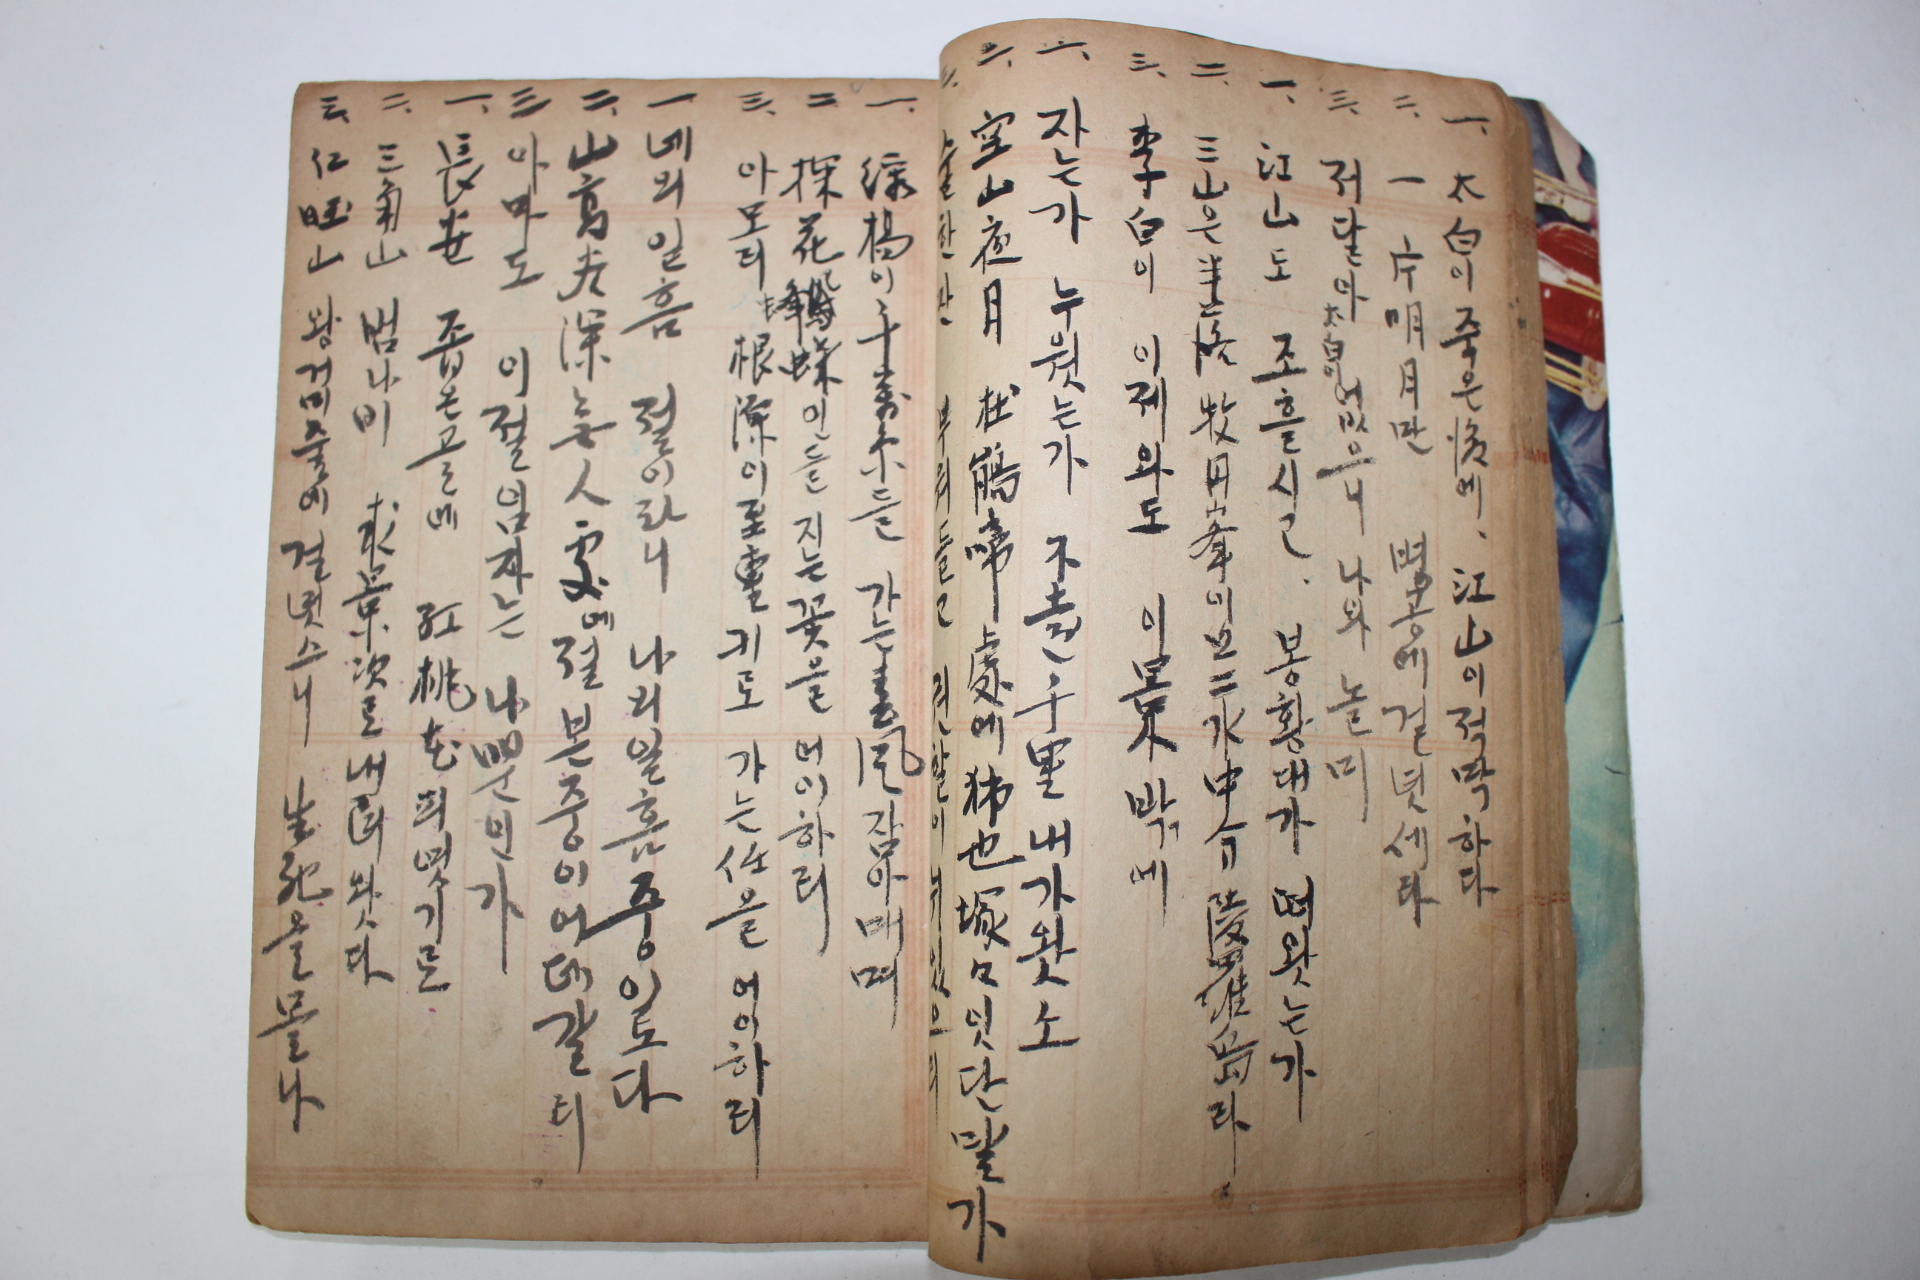 一、太白이 죽은 後에、江山이 적막하다
二、一片明月만 벽공에 걸녓세라
三、저달아 太白이 업스니 나와 놀미
一、江山도 조흘시고、봉황대가 떠왓는가
二、三山은 半落 牧丹峯이오 二水中分 陵羅島라
三、李白이 이제와도 이 景 밖에
一、자는가 누웟는가 不遠千里 내가 왓소
二、空山夜月 杜鵑啼 處에
三、
一、綠楊이 千萬糸ㄴ들 가는 春風 잡아매며
二、探花蜂蝶인들 지는 꽃을 어이하리
三、아모리 根源이 重
一、네의 일흠 절이라니 나의 일흠 중이도다
二、山高 谷深 無人處에 절 본 중이 어데갈리
三、아마도 이 절 님자는 나뿐인가
一、長安 좁은 골에 紅桃花
二、三角山 범나비 求景次로 내려왓다
三、仁旺山 왕거미줄에 걸녓스니 生死을 몰나